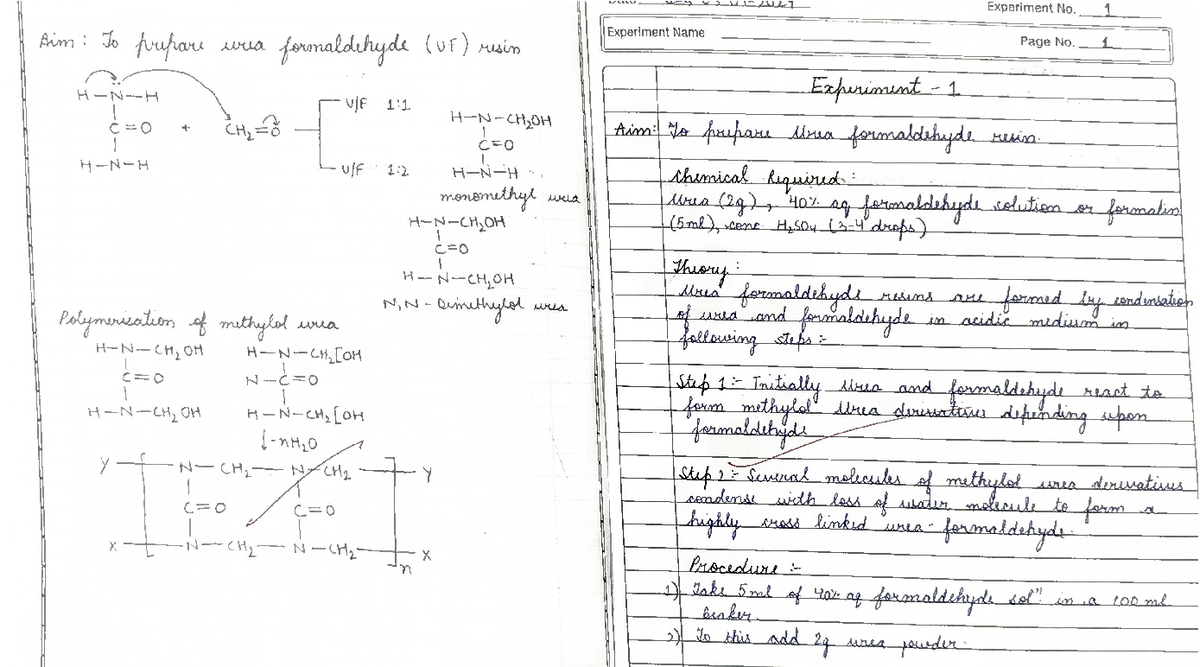 Aim : To prepare urea formaldehyde (UF) resin
H-N-H
C=O + CH2=O
H-N-H
U/F 1:1
U/F 1:2
H-N-CH2OH
C=O
H-N-H
monomethyl urea
H-N-CH2OH
C=O
H-N-CH2OH
N,N-Dimethylol urea
Polymerisation of methylol urea
H-N-CH2OH
C=O
H-N-CH2OH
H-N-CH2[OH
N-C=O
H-N-CH2[OH
↓-nH2O
Y N-CH2-N-CH2 Y
C=O C=O
X N-CH2-N-CH2 X
n
Experiment No. 1
Experiment Name
Page No. 1
Experiment - 1
Aim: To prepare Urea formaldehyde resin.
Chemical Required :
Urea (2g), 40% aq formaldehyde solution or formalin
(5ml), conc. H2SO4 (3-4 drops)
Theory :
Urea formaldehyde resins are formed by condensation
of urea and formaldehyde in acidic medium in
following steps :-
Step 1 :- Initially urea and formaldehyde react to
form methylol urea derivatives depending upon
formaldehyde
Step 2 :- Several molecules of methylol urea derivatives
condense with loss of water molecule to form a
highly cross linked urea-formaldehyde.
Procedure :-
1) Take 5ml of 40% aq formaldehyde solⁿ in a 100 ml
beaker.
2) To this add 2g urea powder.